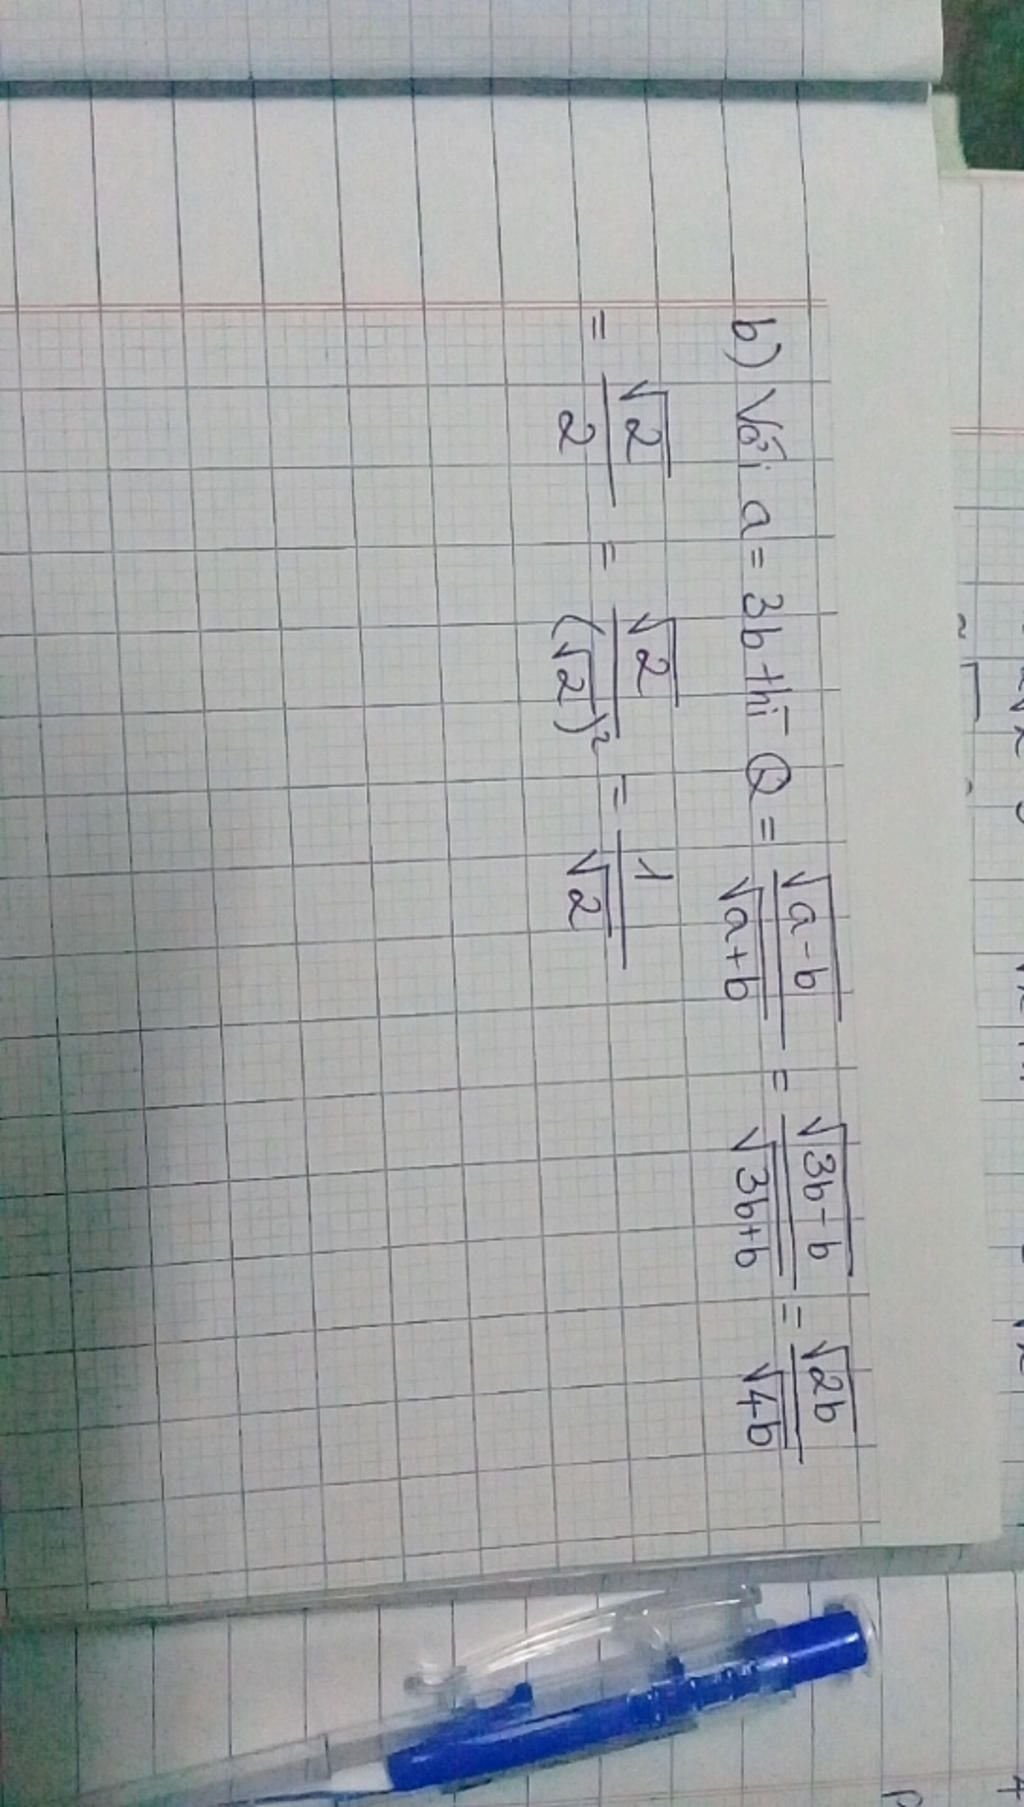 b) Với a = 3b thì Q = √(a-b)/√(a+b) = √(3b-b)/√(3b+b) = √(2b)/√(4b)
= √2/2 = √2/(√2)² = 1/√2